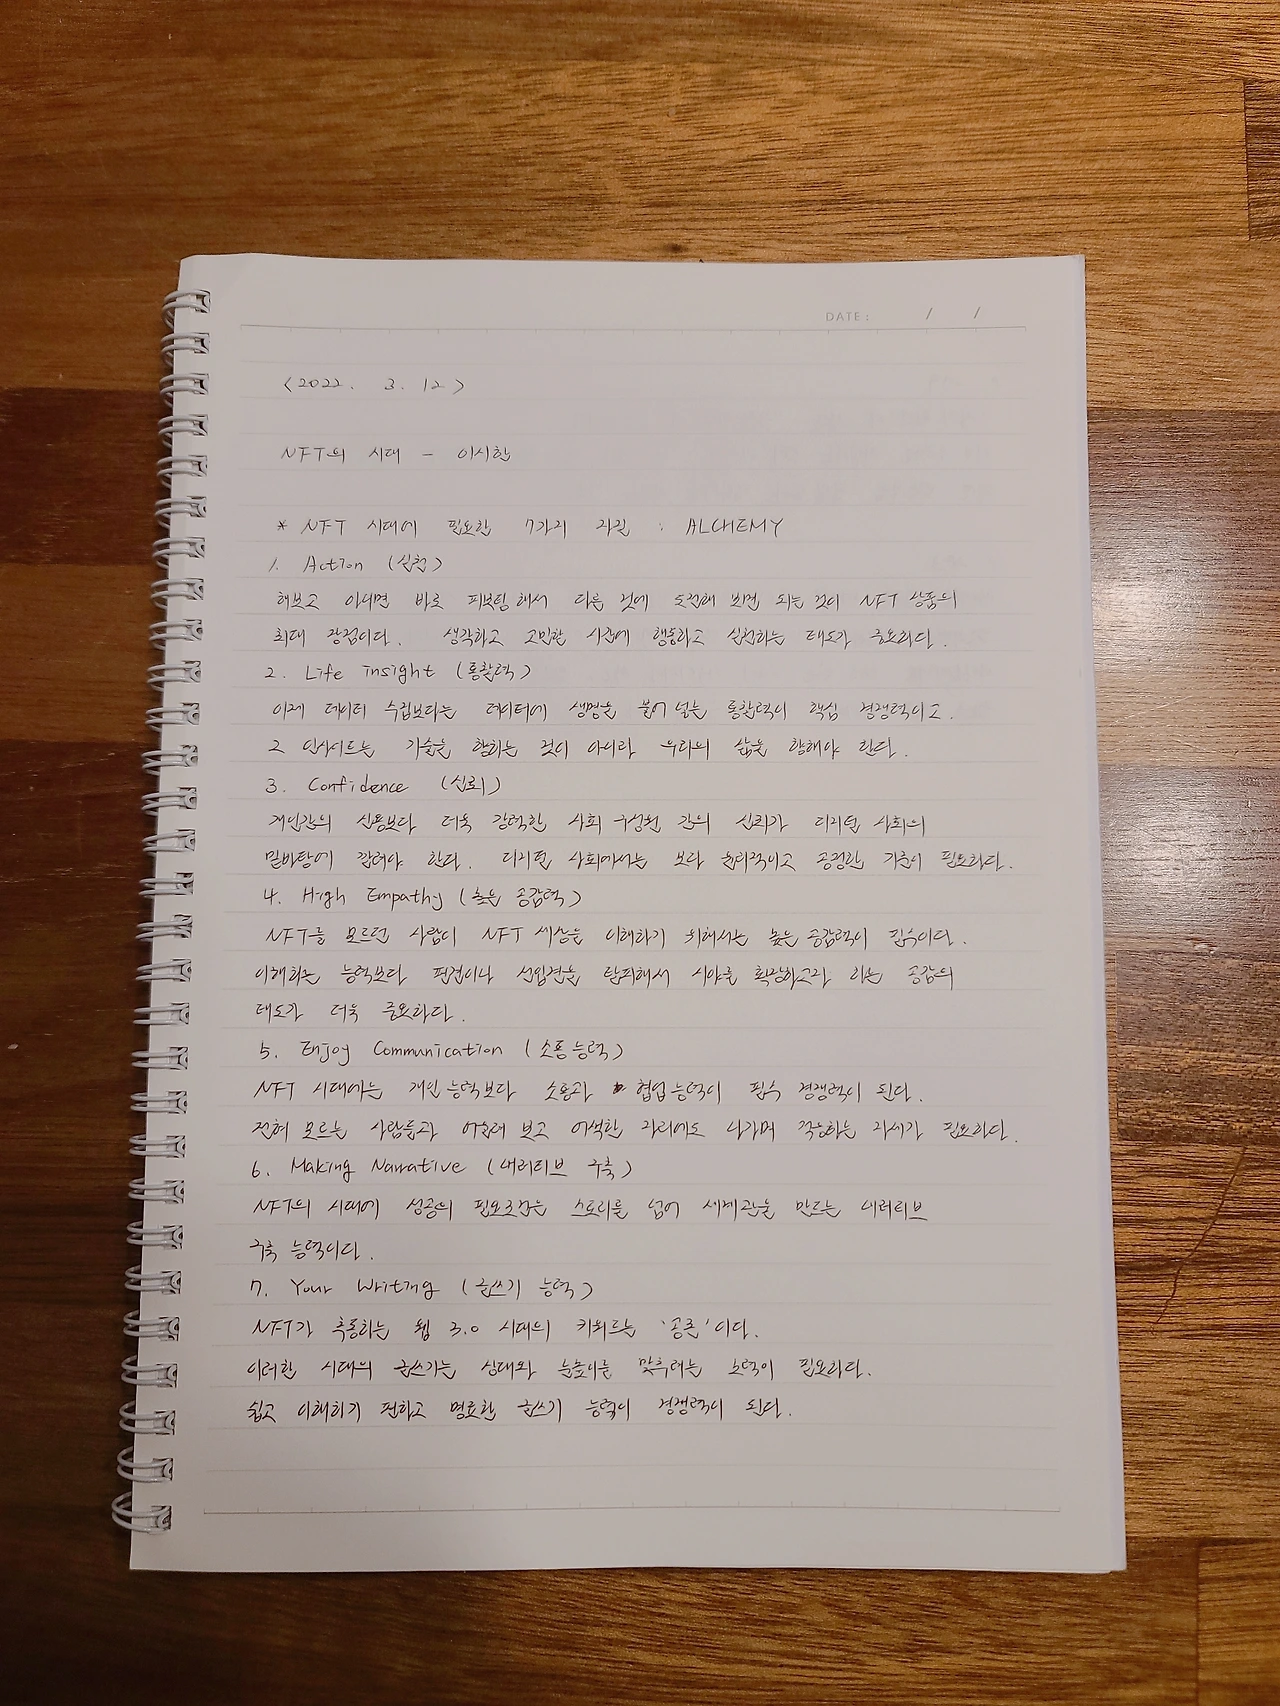 DATE : / /
<2022. 3. 12>
NFT의 시대 - 이시한
* NFT 시대에 필요한 7가지 자질 : ALCHEMY
1. Action (실천)
해보고 아니면 바로 피보팅해서 다른 것에 도전해 보면 되는 것이 NFT 상품의
최대 장점이다. 생각하고 고민할 시간에 행동하고 실천하는 태도가 중요하다.
2. Life insight (통찰력)
이제 데이터 수집보다는 데이터에 생명을 불어 넣는 통찰력이 핵심 경쟁력이고.
그 인사이트는 기술을 향하는 것이 아니라 우리의 삶을 향해야 한다.
3. Confidence (신뢰)
개인간의 신용보다 더욱 강력한 사회 구성원 간의 신뢰가 디지털 사회의
밑바탕에 깔려야 한다. 디지털 사회에서는 보다 윤리적이고 공정한 기준이 필요하다.
4. High Empathy (높은 공감력)
NFT를 모르던 사람이 NFT 세상을 이해하기 위해서는 높은 공감력이 필수이다.
이해하는 능력보다 편견이나 선입견을 탈피해서 시야를 확장하고자 하는 공감의
태도가 더욱 중요하다.
5. Enjoy Communication (소통 능력)
NFT 시대에는 개인 능력보다 소통과 협업 능력이 필수 경쟁력이 된다.
전혀 모르는 사람들과 어울려 보고 어색한 자리에도 나가며 적응하는 자세가 필요하다.
6. Making Narrative (내러티브 구축)
NFT의 시대에 성공의 필요조건은 스토리를 넘어 세계관을 만드는 내러티브
구축 능력이다.
7. Your Writing (글쓰기 능력)
NFT가 추동하는 웹 3.0 시대의 키워드는 '공존'이다.
이러한 시대의 글쓰기는 상대와 눈높이를 맞추려는 노력이 필요하다.
쉽고 이해하기 편하고 명료한 글쓰기 능력이 경쟁력이 된다.